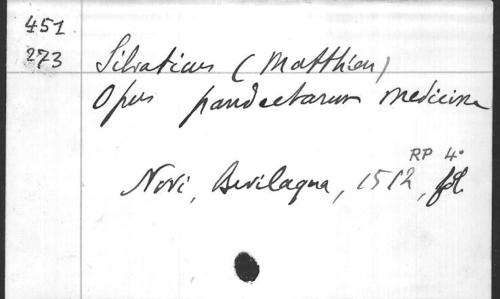 451
273 Silvaticus (Matthieu)
Opus pandectarum medicine
RP 4°
Novi, Bevilaqua, 1512, fol